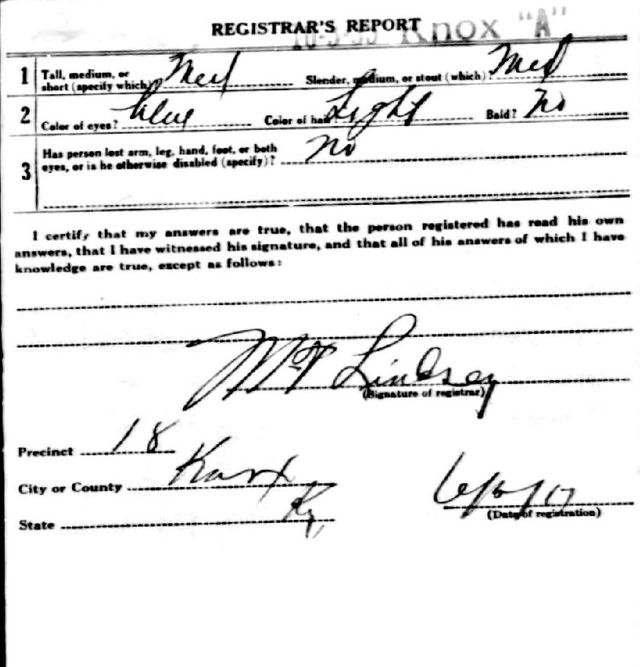 REGISTRAR'S REPORT
Knox "A"
1 Tall, medium, or short (specify which)? Med Slender, medium, or stout (which)? Med
2 Color of eyes? blue Color of hair? Light Bald? no
3 Has person lost arm, leg, hand, foot, or both
eyes, or is he otherwise disabled (specify)? no
I certify that my answers are true, that the person registered has read his own
answers, that I have witnessed his signature, and that all of his answers of which I have
knowledge are true, except as follows:
Lindsey
(Signature of registrar)
Precinct 18
City or County Knox
State Ky,
(Date of registration)